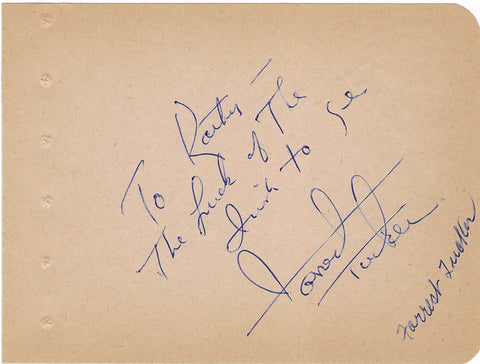 To Kathy —
The Luck of The
Irish to ye
Forrest
Tucker
Forrest Tucker